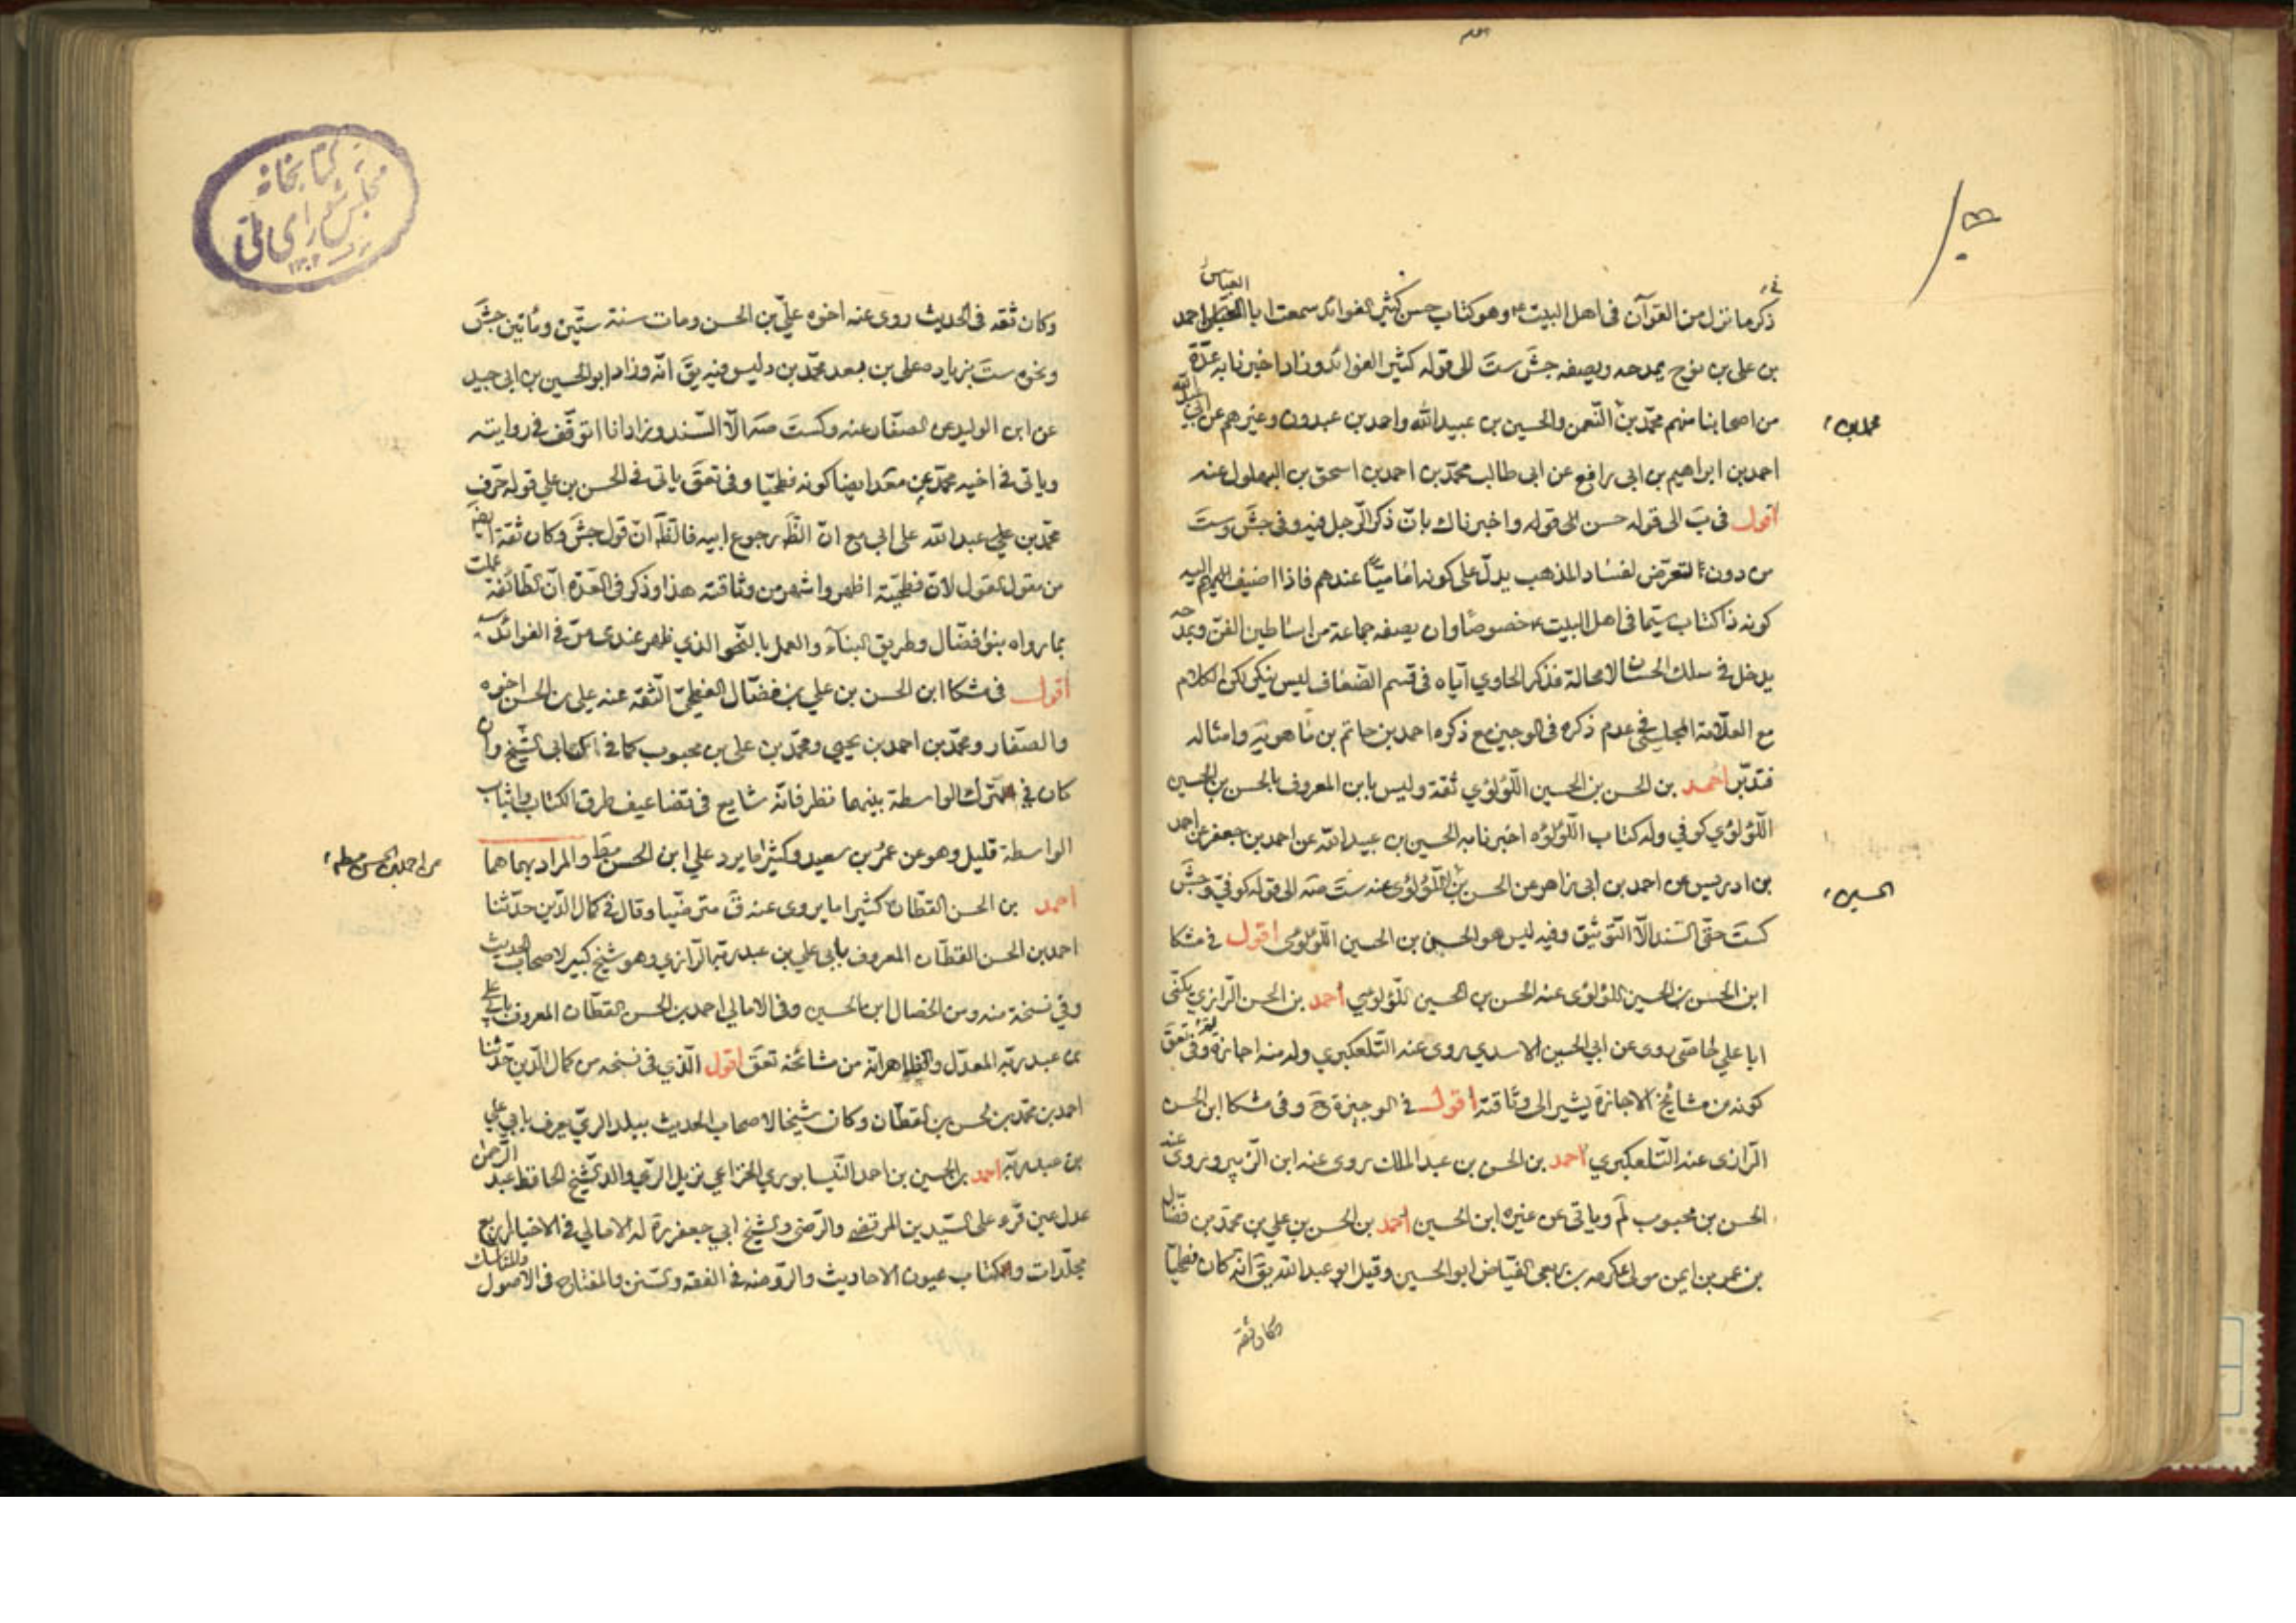 ذكر ما نزل من القرآن فى اهل البيت ع وهو كتاب حسن كثير الفوائد سمعت ابا العباس احمد
بن على بن نوح يمدحه ويصفه جش ست الى قوله كثير الفوائد وزاد اخبرنا به عدة
من اصحابنا منهم محمد بن محمد بن النعمن والحسين بن عبيد الله واحمد بن عبدون وغيرهم عن ابى عبد الله
احمد بن ابراهيم بن ابى رافع عن ابى طالب محمد بن احمد بن اسحق بن البهلول عنه
اقول فى ب الى قوله حسن الى قوله واخبرناك بان ذكر الرجل فيه وفى جش وست
من دون التعرض لفساد المذهب يدل على كونه اماميا عندهم فاذا اضيف اليه
كونه ذا كتاب سيما فى اهل البيت ع خصوصا وان يصفه جماعة من اساطين الفن ويمدحه
يدخل فى سلك الحسان لا محالة فذكر الحاوي اياه فى قسم الضعاف ليس بنكير لكن الكلام
مع العلامة المجلسى فى عدم ذكره فى الوجيزة مع ذكره احمد بن حاتم بن ماهويه وامثاله
فتدبر احمد بن الحسن بن الحسين اللؤلؤي ثقة وليس بابن المعروف بالحسن بن الحسين
اللؤلؤي كوفي وله كتاب اللؤلؤه اخبرنا به الحسين بن عبيد الله عن احمد بن جعفر عن احمد
بن ادريس عن احمد بن ابى زاهر عن الحسن بن الحسين اللؤلؤى عنه ست صه الى قوله كوفي وجش
كست حتى السند الا التوثيق وفيه ليس هو الحسن بن الحسين اللؤلؤى اقول فى مشكا
ابن الحسن بن الحسين اللؤلؤى عنه الحسن بن الحسين اللؤلؤي احمد بن الحسن الرازي يكنى
ابا علي خاصى روى عن ابي الحسين الاسدي روى عنه التلعكبري وله منه اجازة لم وفى تعق
كونه من مشايخ الاجازة يشير الى وثاقته اقول فى الوجيزة ح وفى مشكا ابن الحسن
الرازى عنه التلعكبري احمد بن الحسن بن عبد الملك روى عنه ابن الزبير وروى عنه
الحسن بن محبوب لم وياتى عن غيره ابن الحسين احمد بن الحسن بن علي بن محمد بن فضال
بن عمر بن ايمن مولى عكرمه بن ربعى الفياض ابو الحسين وقيل ابو عبد الله يق انه كان فطحيا
وكان ثقة
وكان ثقه فى الحديث روى عنه اخوه علي بن الحسن ومات سنة ستين ومأتين جش
ونحوه ست بزياده على بن بعد محمد بن وليس فيه يق انه وزاد ابو الحسين بن ابى جيد
عن ابن الوليد عن الصفار عنه وكست صه الا السند وزاد انا اتوقف فى روايته
وياتى فى اخيه محمد عن معد ايضا كونه فطحيا وفى تعق ياتى فى الحسن بن علي قوله حرف
محمد بن علي عبد الله على ابي مع ان الظ رجوع ابيه فالظ ان قول جش وكان ثقة ايض
من مقول القول لان فطحيته اظهر واشهر من وثاقته هذا وذكر فى العدة ان الطائفة عملت
بما رواه بنو فضال وطريق البناء والعمل بالنحو الذي ظهر عندى مر فى الفوائد
اقول فى مشكا ابن الحسن بن علي بن فضال الفطحي الثقه عنه على بن الحسن اخوه
والصفار ومحمد بن احمد بن يحيى ومحمد بن على بن محبوب كما فى كتابى الشيخ وان
كان فى ترك الواسطة بينهما نظر فانه شايع فى تضاعيف طرق الكتاب واثبات
الواسطة قليل وهو عن عمر بن سعيد وكثيرا ما يرد علي ابن الحسن مط والمراد بهما هما
احمد بن الحسن القطان كثيرا ما يروى عنه ق مترضيا وقال فى كمال الدين حدثنا
احمد بن الحسن القطان المعروف بابى علي بن عبد ربه الرازي وهو شيخ كبير لاصحاب الحديث
وفي نسخة منه ومن الخصال ابن الحسين وفى الامالي احمد بن الحسن القطان المعروف بابى علي
بن عبد ربه المعدل والظاهر انه من مشائخه تعق اقول الذي فى نسخه من كمال الدين حدثنا
احمد بن محمد بن الحسن بن القطان وكان شيخا لاصحاب الحديث ببلد الري يعرف بابي علي
بن عبد ربه احمد بن الحسين بن احمد النيسابوري الخزاعي نزيل الري والد الشيخ الحافظ عبد الرحمن
عدل عين قرء على السيدين المرتضى والرضى والشيخ ابي جعفر ره له الامالي فى الاخبار اربع
مجلدات وكتاب عيون الاحاديث والروضه فى الفقه والسنن والمفتاح فى الاصول والمناسك
محمد بن
الحسين
كتابخانه
مجلس شوراى ملى